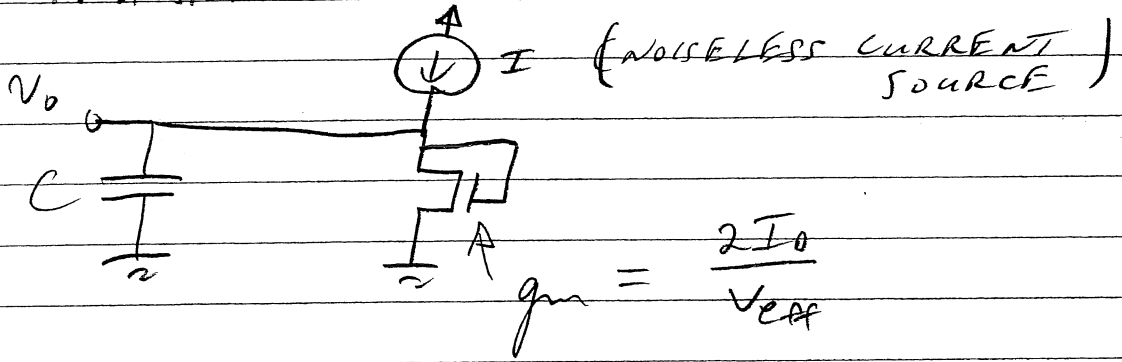 I (NOISELESS CURRENT
SOURCE)
Vo
C
gm = 2ID / Veff